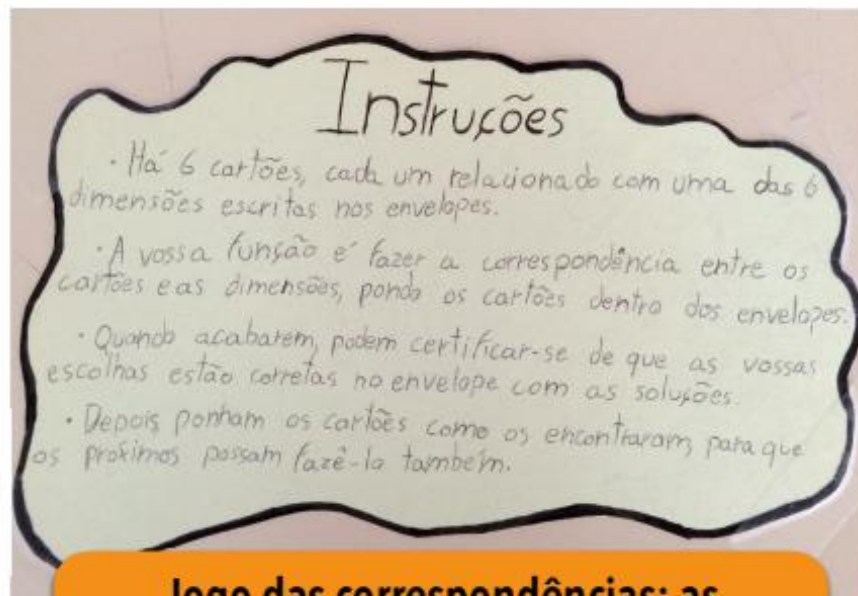 Instruções
· Há 6 cartões, cada um relacionado com uma das 6
dimensões escritas nos envelopes.
· A vossa função é fazer a correspondência entre os
cartões e as dimensões, pondo os cartões dentro dos envelopes.
· Quando acabarem, podem certificar-se de que as vossas
escolhas estão corretas no envelope com as soluções.
· Depois ponham os cartões como os encontraram, para que
os próximos possam fazê-lo também.
Jogo das correspondências: as